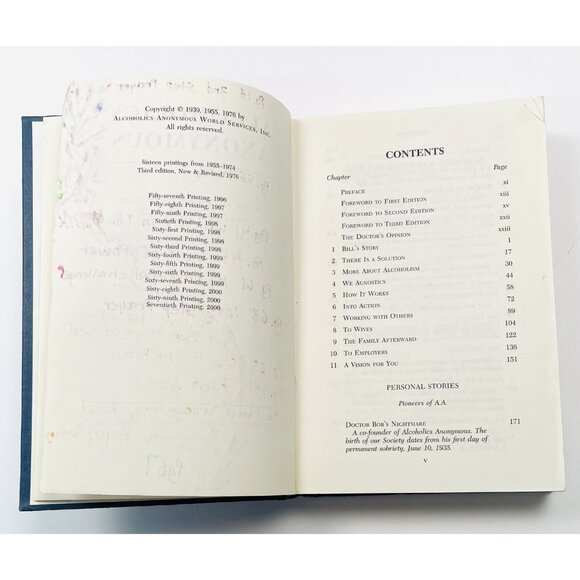 Copyright © 1939, 1955, 1976 by
Alcoholics Anonymous World Services, Inc.
All rights reserved.
Sixteen printings from 1955–1974
Third edition, New & Revised, 1976
Fifty-seventh Printing, 1996
Fifty-eighth Printing, 1997
Fifty-ninth Printing, 1997
Sixtieth Printing, 1998
Sixty-first Printing, 1998
Sixty-second Printing, 1998
Sixty-third Printing, 1998
Sixty-fourth Printing, 1999
Sixty-fifth Printing, 1999
Sixty-sixth Printing, 1999
Sixty-seventh Printing, 1999
Sixty-eighth Printing, 2000
Sixty-ninth Printing, 2000
Seventieth Printing, 2000
CONTENTS
Chapter Page
Preface xi
Foreword to First Edition xiii
Foreword to Second Edition xv
Foreword to Third Edition xxii
The Doctor's Opinion xxiii
1 Bill's Story 1
2 There Is a Solution 17
3 More About Alcoholism 30
4 We Agnostics 44
5 How It Works 58
6 Into Action 72
7 Working with Others 89
8 To Wives 104
9 The Family Afterward 122
10 To Employers 136
11 A Vision for You 151
PERSONAL STORIES
Pioneers of A.A.
Doctor Bob's Nightmare 171
A co-founder of Alcoholics Anonymous. The
birth of our Society dates from his first day of
permanent sobriety, June 10, 1935.
v